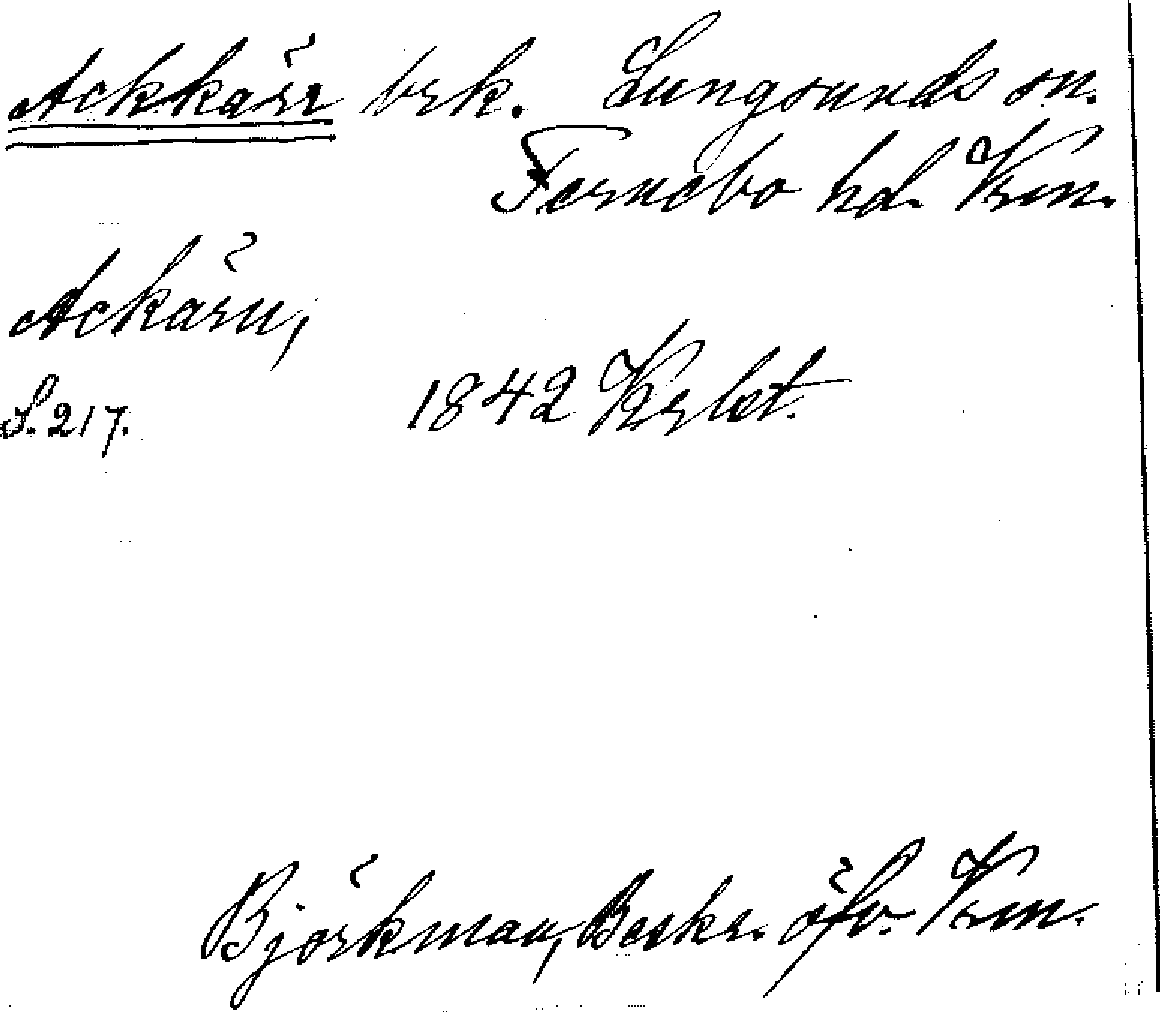 Ackkärr brk. Lungsunds sn.
Fernebo hd. Vrm.
Ackärn,
S. 217. 1842 Krlst.
Björkman, Beskr. öfv. Vrm.